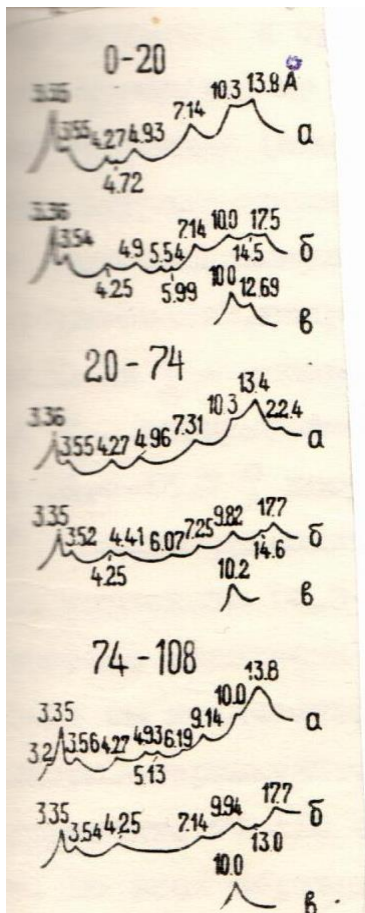 0-20
3.55 4.27 4.93 7.14 10.3 13.8 Å
4.72
а
3.36 3.54 4.9 5.54 7.14 10.0 17.5
4.25 5.99 14.5
б
10.0 12.69
в
20-74
3.36 3.55 4.27 4.96 7.31 10.3 13.4 22.4
а
3.35 3.52 4.41 6.07 7.25 9.82 17.7
4.25 14.6
б
10.2
в
74-108
3.35 10.0 13.8
3.2 3.56 4.27 4.93 6.19 9.14
5.13
а
3.35 3.54 4.25 7.14 9.94 17.7
13.0
б
10.0
в